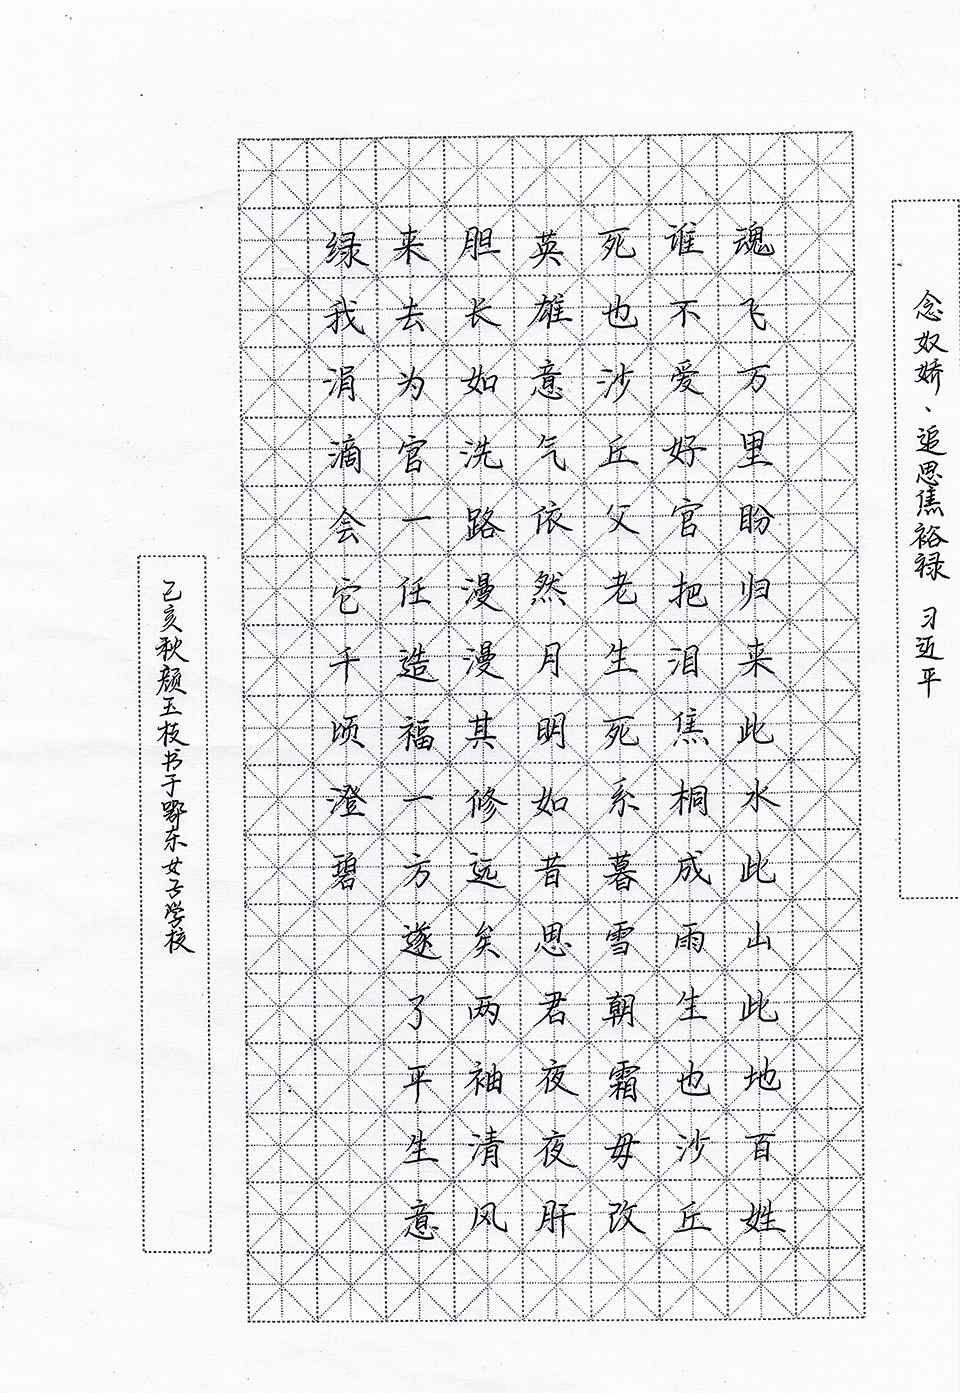 念奴娇、追思焦裕禄 习近平
魂飞万里盼归来此水此山此地百姓
谁不爱好官把泪焦桐成雨生也沙丘
死也沙丘父老生死系暮雪朝霜毋改
英雄意气依然月明如昔思君夜夜肝
胆长如洗路漫漫其修远矣两袖清风
来去为官一任造福一方遂了平生意
绿我涓滴会它千顷澄碧
乙亥秋颜玉枝书于鄂东女子学校